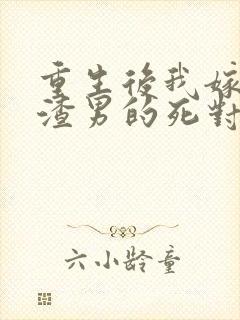 重生後我嫁
渣男的死對
六小齡童